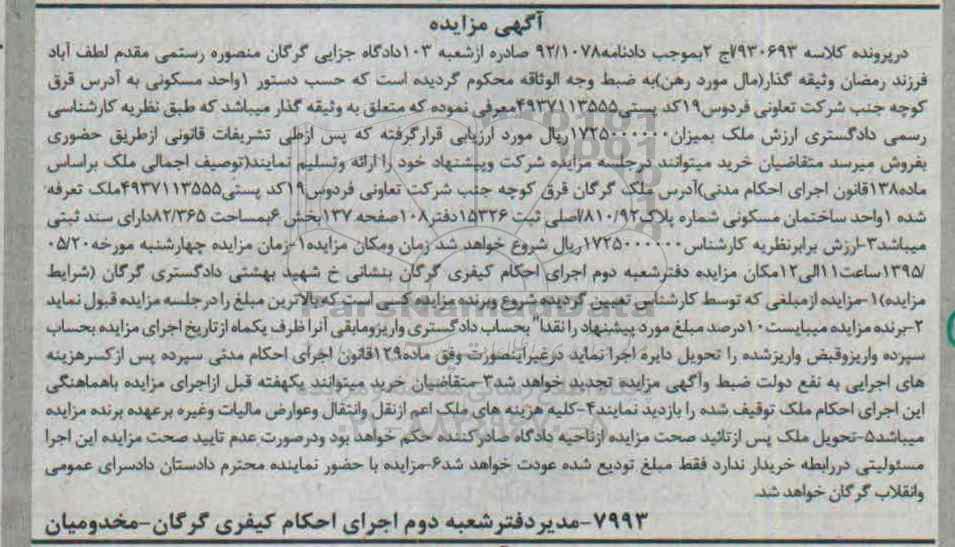 آگهی مزایده
درپرونده کلاسه ۹۳۰۶۹۳/اج ۲بموجب دادنامه۹۲/۱۰۷۸ صادره ازشعبه ۱۰۳دادگاه جزایی گرگان منصوره رستمی مقدم لطف آباد
فرزند رمضان وثیقه گذار(مال مورد رهن)به ضبط وجه الوثاقه محکوم گردیده است که حسب دستور ۱واحد مسکونی به آدرس قرق
کوچه جنب شرکت تعاونی فردوس۱۹کد پستی۴۹۳۷۱۱۳۵۵۵معرفی نموده که متعلق به وثیقه گذار میباشد که طبق نظریه کارشناسی
رسمی دادگستری ارزش ملک بمیزان۱۷۲۵۰۰۰۰۰۰ریال مورد ارزیابی قرارگرفته که پس ازطی تشریفات قانونی ازطریق حضوری
بفروش میرسد متقاضیان خرید میتوانند درجلسه مزایده شرکت وپیشنهاد خود را ارائه وتسلیم نمایند(توصیف اجمالی ملک براساس
ماده۱۳۸قانون اجرای احکام مدنی)آدرس ملک گرگان قرق کوچه جنب شرکت تعاونی فردوس۱۹کد پستی۴۹۳۷۱۱۳۵۵۵ملک تعرفه
شده ۱واحد ساختمان مسکونی شماره پلاک۸۱۰/۹۲/اصلی ثبت ۱۵۳۲۶دفتر۱۰۸صفحه ۱۳۷بخش ۶بمساحت ۸۲/۳۶۵دارای سند ثبتی
میباشد۳-ارزش برابرنظریه کارشناس۱۷۲۵۰۰۰۰۰۰ریال شروع خواهد شد زمان ومکان مزایده۱-زمان مزایده چهارشنبه مورخه ۰۵/۲۰
/۱۳۹۵ساعت۱۱الی۱۲مکان مزایده دفترشعبه دوم اجرای احکام کیفری گرگان بنشانی خ شهید بهشتی دادگستری گرگان (شرایط
مزایده)۱-مزایده ازمبلغی که توسط کارشناس تعیین گردیده شروع وبرنده مزایده کسی است که بالاترین مبلغ را درجلسه مزایده قبول نماید
۲-برنده مزایده میبایست۱۰درصد مبلغ مورد پیشنهاد را نقدا" بحساب دادگستری واریزومابقی آنرا ظرف یکماه ازتاریخ اجرای مزایده بحساب
سپرده واریزوقبض واریزشده را تحویل دایره اجرا نماید درغیراینصورت وفق ماده۱۲۹قانون اجرای احکام مدنی سپرده پس ازکسرهزینه
های اجرایی به نفع دولت ضبط وآگهی مزایده تجدید خواهد شد۳-متقاضیان خرید میتوانند یکهفته قبل ازاجرای مزایده باهماهنگی
این اجرای احکام ملک توقیف شده را بازدید نمایند۴-کلیه هزینه های ملک اعم ازنقل وانتقال وعوارض مالیات وغیره برعهده برنده مزایده
میباشد۵-تحویل ملک پس ازتائید صحت مزایده ازناحیه دادگاه صادرکننده حکم خواهد بود ودرصورت عدم تایید صحت مزایده این اجرا
مسئولیتی دررابطه خریدار ندارد فقط مبلغ تودیع شده عودت خواهد شد۶-مزایده با حضور نماینده محترم دادستان دادسرای عمومی
وانقلاب گرگان خواهد شد.
۷۹۹۳-مدیردفترشعبه دوم اجرای احکام کیفری گرگان-مخدومیان
ParsNamadData
۰۲۱-۸۸۳۴۹۶۷۰-۸